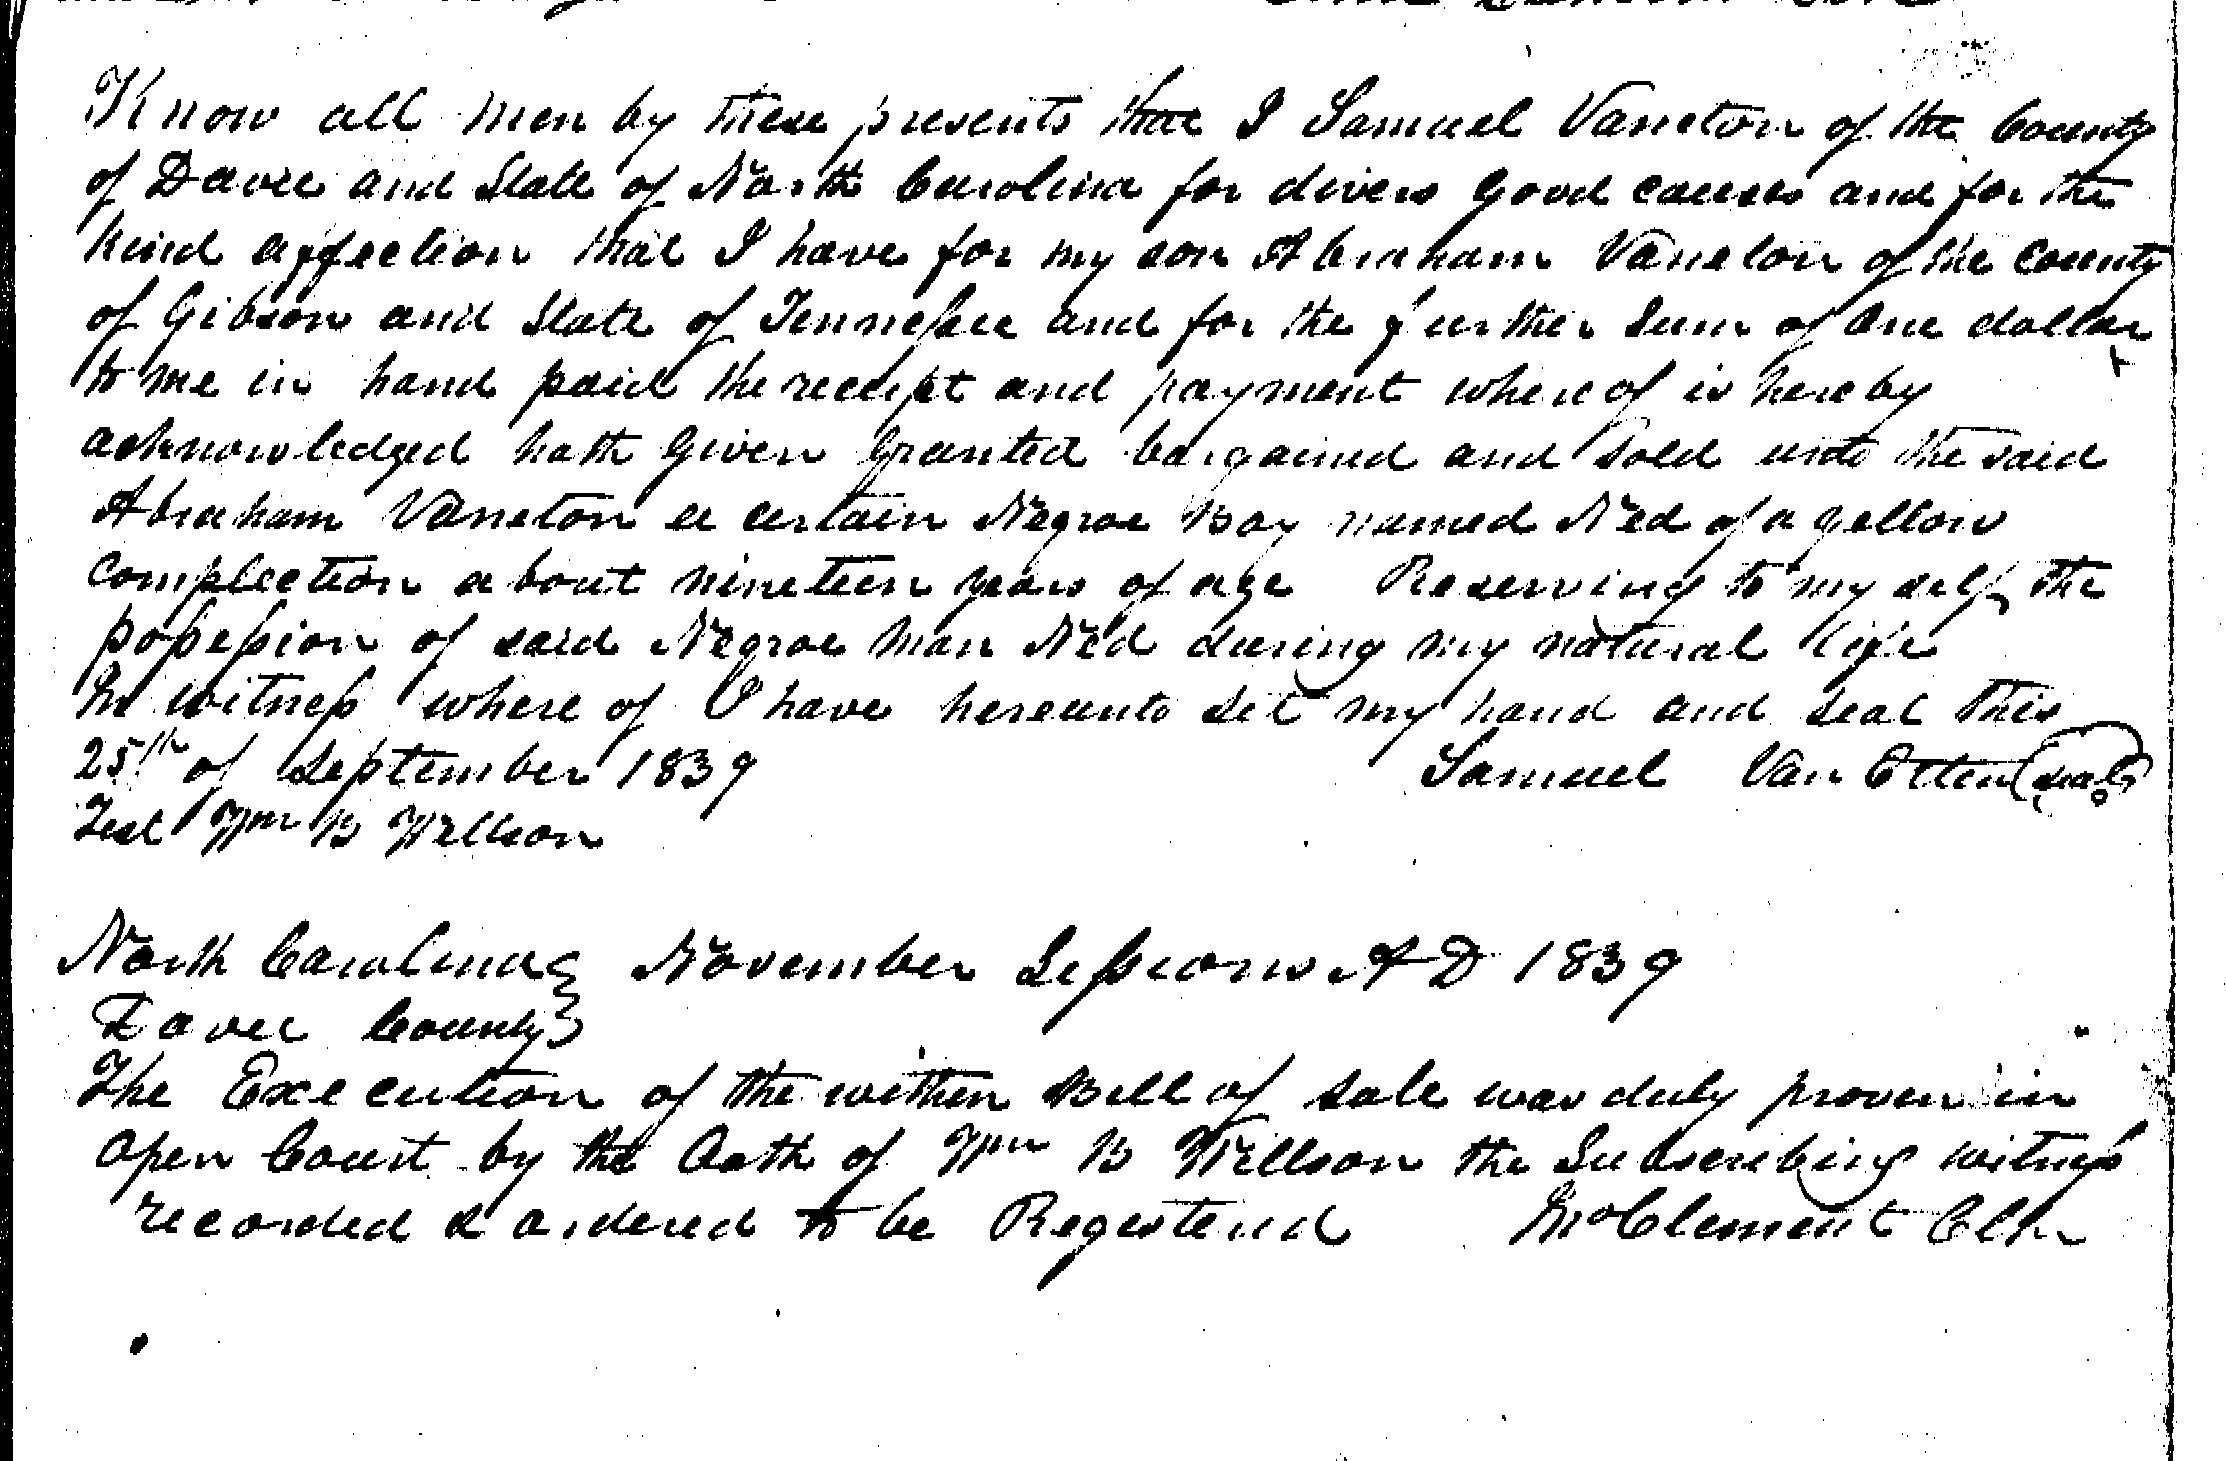 Know all men by these presents that I Samuel Vaneton of the County
of Davie and State of North Carolina for divers good causes and for the
kind affection that I have for my son Abraham Vaneton of the County
of Gibson and State of Tennessee and for the further Sum of One dollar
to me in hand paid the receipt and payment where of is hereby
acknowledged hath Given Granted bargained and Sold unto the said
Abraham Vaneton a certain Negroe Boy named Ned of a yellow
Complection about nineteen years of age Reserving to my self the
possession of said Negroe Man Ned during my natural life
In witness where of I have hereunto set my hand and seal this
25th of September 1839 Samuel Van Etten (seal)
Test Wm B Willson
North Carolina } November Sessions A D 1839
Davie County }
The Execution of the within Bill of Sale was duly proven in
Open Court by the Oath of Wm B Willson the Subscribing witness
recorded & ordered to be Registerd Jno Clement Clk